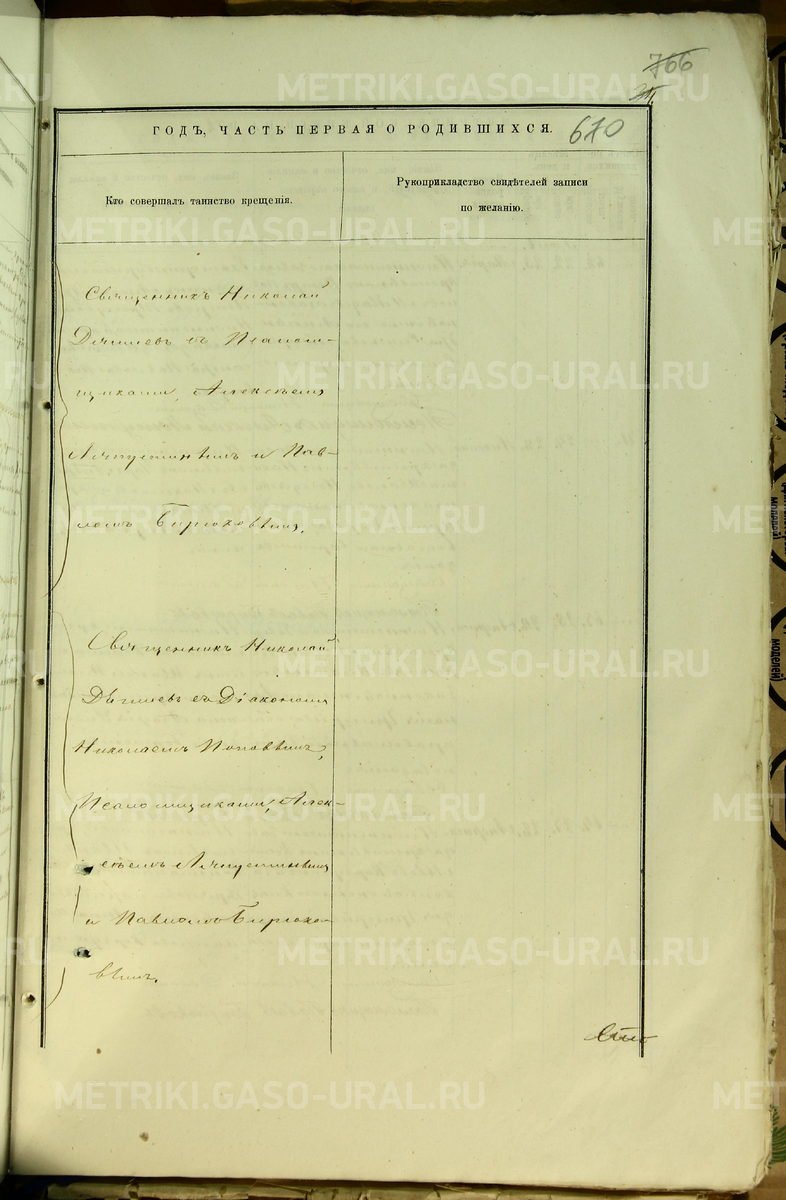 766
610
ГОДЪ, ЧАСТЬ ПЕРВАЯ О РОДИВШИХСЯ.
Кто совершалъ таинство крещенія.
Рукоприкладство свидѣтелей записи
по желанію.
Священникъ Николай
съ Псалом-
щиками, Алексѣемъ
и Пав-
ломъ Бирюковымъ.
Священникъ Николай
съ Діакономъ
Николаемъ Поповымъ,
Псаломщиками, Алек-
сѣемъ
и Павломъ Бирюко-
вымъ.
METRIKI.GASO-URAL.RU